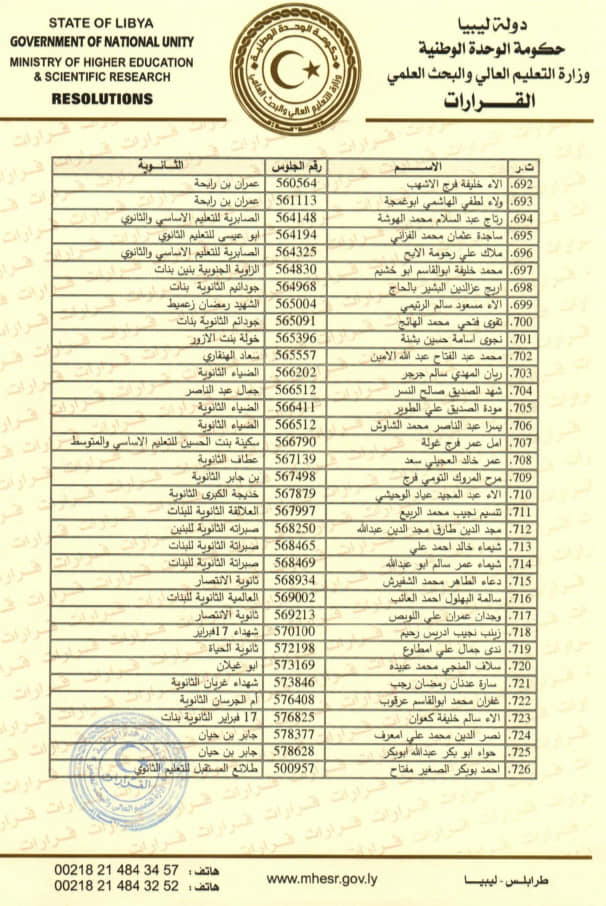 STATE OF LIBYA
GOVERNMENT OF NATIONAL UNITY
MINISTRY OF HIGHER EDUCATION
& SCIENTIFIC RESEARCH
RESOLUTIONS
دولة ليبيا
حكومة الوحدة الوطنية
وزارة التعليم العالي والبحث العلمي
القــرارات
حكومة الوحدة الوطنية
وزارة التعليم العالي والبحث العلمي
ت.ر الاســـم رقم الجلوس الثـانـويـة
692. الاء خليفة فرج الاشهب 560564 عمران بن رابحة
693. ولاء لطفي الهاشمي ابوغمجة 561113 عمران بن رابحة
694. رتاج عبد السلام محمد الهوشة 564148 الصابرية للتعليم الاساسي والثانوي
695. ساجدة عثمان محمد القزاني 564194 ابو عيسى للتعليم الثانوي
696. ملاك علي رحومة الابح 564325 الصابرية للتعليم الاساسي والثانوي
697. محمد خليفة ابوالقاسم ابو خشيم 564830 الزاوية الجنوبية بنين بنات
698. اريج عزالدين البشير بالحاج 564968 جودائيم الثانوية بنات
699. الاء مسعود سالم الرتيمي 565004 الشهيد رمضان زعميط
700. تقوى فتحي محمد الهائج 565091 جودائم الثانوية بنات
701. نجوى أسامة حسين بشنة 565396 خولة بنت الازور
702. محمد عبد الفتاح عبد الله الامين 565557 سعاد الهنقاري
703. ريان المهدي سالم جرجر 566202 الضياء الثانوية
704. شهد الصديق صالح النسر 566512 جمال عبد الناصر
705. مودة الصديق علي الطوير 566411 الضياء الثانوية
706. يسرا عبد الناصر محمد الشاوش 566512 الضياء الثانوية
707. امل عمر فرج غولة 566790 سكينة بنت الحسين للتعليم الاساسي والمتوسط
708. عمر خالد العجيلي سعد 567139 عطاف الثانوية
709. مرح المروك التومي فرج 567498 بن جابر الثانوية
710. الاء عبد المجيد عياد الوحيشي 567879 خديجة الكبرى الثانوية
711. تنسيم نجيب محمد الربيع 567997 العلالقة الثانوية للبنات
712. مجد الدين طارق مجد الدين عبدالله 568250 صبراته الثانوية للبنين
713. شيماء خالد احمد علي 568465 صبراتة الثانوية للبنات
714. شيماء عمر سالم أبو عبدالله 568469 صبراتة الثانوية للبنات
715. دعاء الطاهر محمد الشفيرش 568934 ثانوية الانتصار
716. سالمة البهلول احمد العائب 569002 العالمية الثانوية للبنات
717. وجدان عمران علي النويص 569213 ثانوية الانتصار
718. زينب نجيب ادريس رحيم 570100 شهداء 17فبراير
719. ندى جمال علي امطاوع 572198 ثانوية الحياة
720. سلاف المنجي محمد عبيده 573169 ابو غيلان
721. سارة عدنان رمضان رجب 573846 شهداء غريان الثانوية
722. غفران محمد ابوالقاسم عرقوب 576408 أم الجرسان الثانوية
723. الاء سالم خليفة كعوان 576825 17 فبراير الثانوية بنات
724. نصر الدين محمد علي امعرف 578377 جابر بن حيان
725. حواء ابو بكر عبدالله أبوبكر 578628 جابر بن حيان
726. احمد بوبكر الصغير مفتاح 500957 طلائع المستقبل للتعليم الثانوي
القرارات
00218 21 484 34 57 هاتف :
00218 21 484 32 52 هاتف :
www.mhesr.gov.ly
طرابلس - ليبيــا